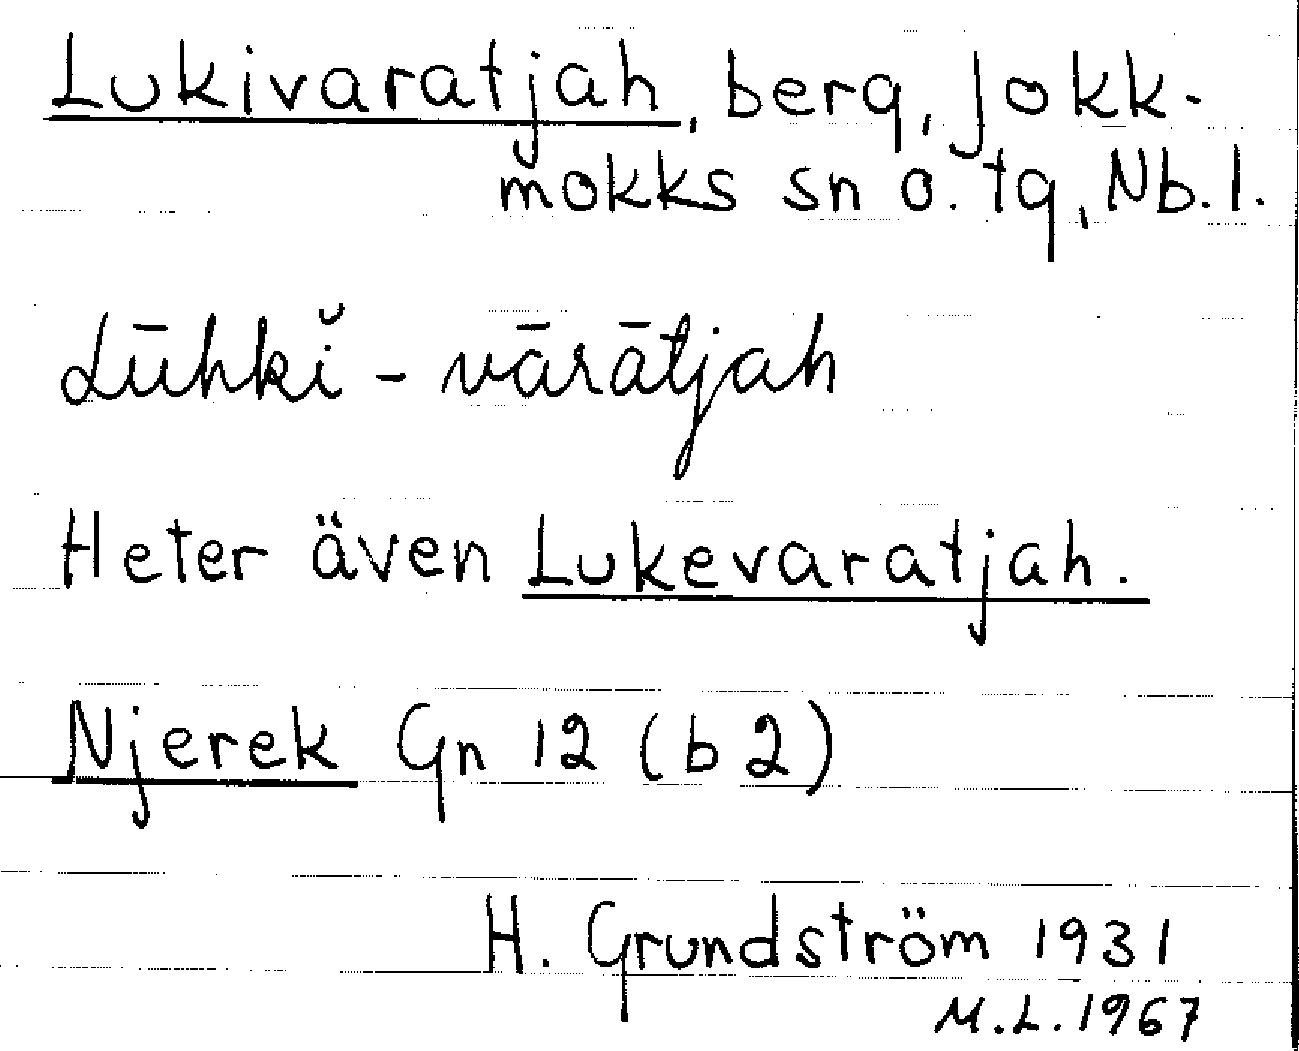 Lukivaratjah, berg, Jokk-
mokks sn o. tg, Nb. l.
Lūhkĭ - vārātjah
Heter även Lukevaratjah.
Njerek Gn 12 (b 2)
H. Grundström 1931
M.L. 1967